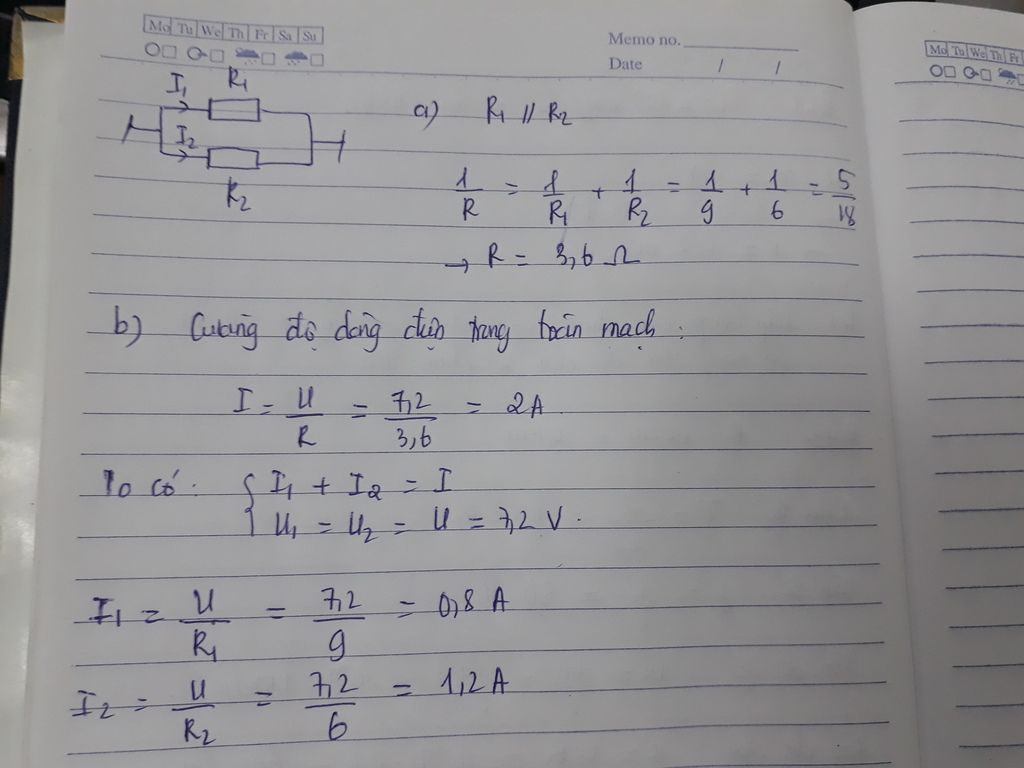 Mo Tu We Th Fr Sa Su
Memo no.
Date / /
Mo Tu We Th Fr
I₁ R₁
I₂
R₂
a) R₁ // R₂
1/R = 1/R₁ + 1/R₂ = 1/9 + 1/6 = 5/18
→ R = 3,6 Ω
b) Cường độ dòng điện trong toàn mạch :
I = U/R = 7,2/3,6 = 2A
Ta có : { I₁ + I₂ = I
U₁ = U₂ = U = 7,2 V.
I₁ = U/R₁ = 7,2/9 = 0,8 A
I₂ = U/R₂ = 7,2/6 = 1,2 A